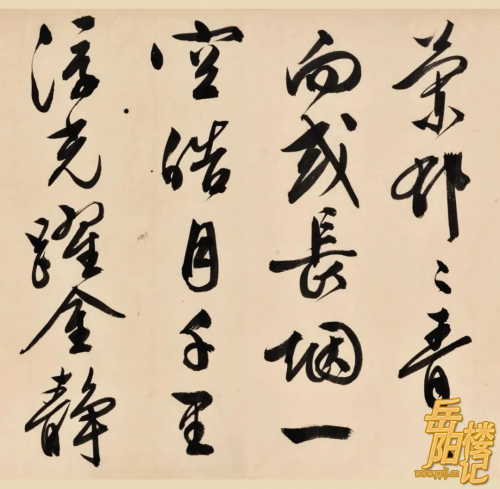 蘭郁〻青
而或長烟一
空皓月千里
浮光躍金静
岳阳楼记
www.yylj.cn